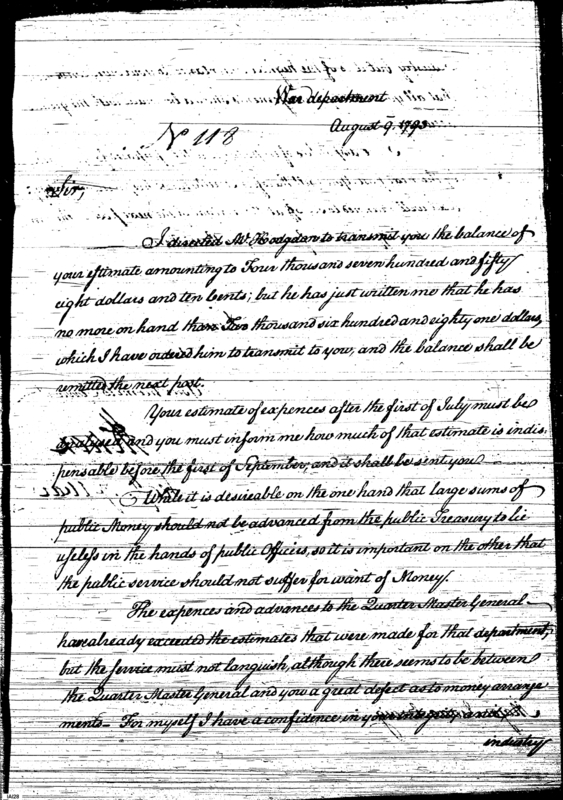 War department
August 9. 1793
No 118
Sir,
I directed Mr. Hodgdon to transmit you the balance of
your estimate amounting to Four thousand seven hundred and fifty
eight dollars and ten Cents; but he has just written me that he has
no more on hand than Two thousand six hundred and eighty one dollars,
which I have ordered him to transmit to you, and the balance shall be
remitted the next post.
Your estimate of expences after the first of July must be
analysed and you must inform me how much of that estimate is indis:
pensable before the first of September; and it shall be sent you
While it is desireable on the one hand that large sums of
public Money should not be advanced from the public Treasury to lie
useless in the hands of public Officers, so it is important on the other that
the public service should not suffer for want of Money.
The expences and advances to the Quarter Master General
have already exceeded the estimates that were made for that department;
but the service must not languish, although there seems to be between
the Quarter Master General and you a great defect as to money arrange
ments. For myself I have a confidence in your integrity and
industry